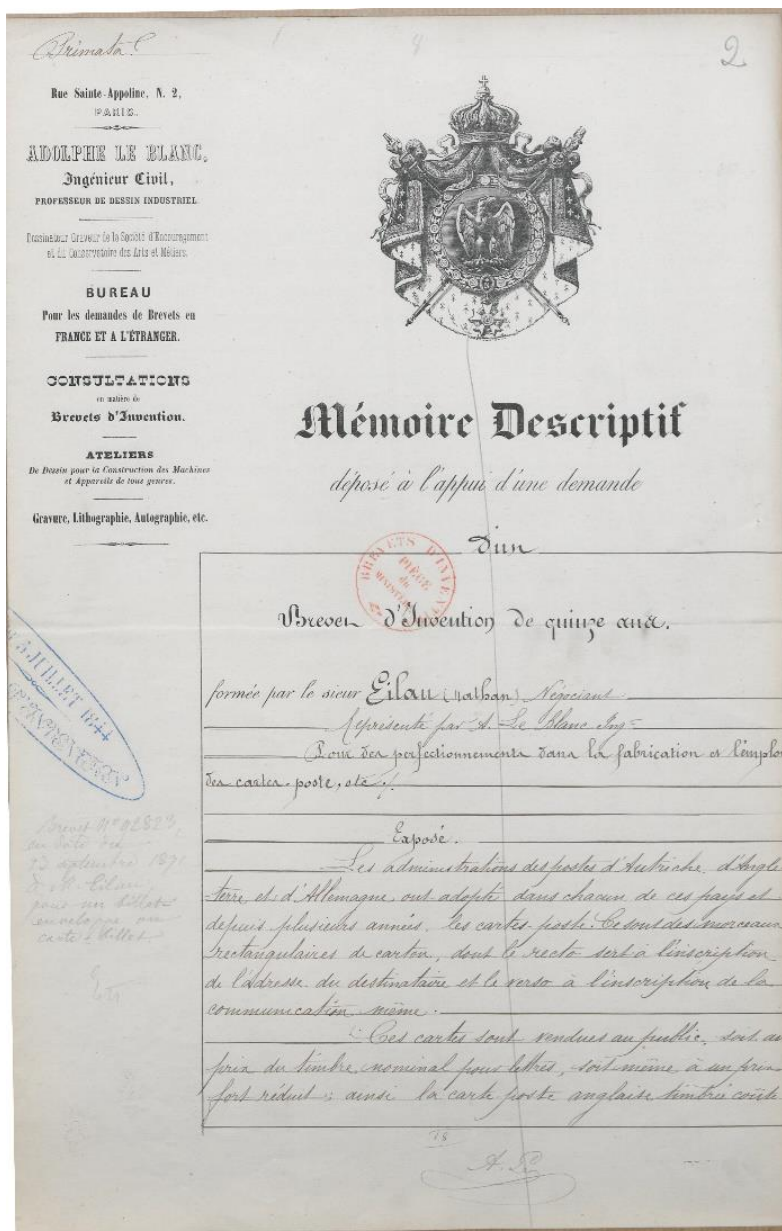 Primata
2
Rue Sainte-Appoline, N. 2,
PARIS.
ADOLPHE LE BLANC,
Ingénieur Civil,
PROFESSEUR DE DESSIN INDUSTRIEL
Dessinateur Graveur de la Société d'Encouragement
et du Conservatoire des Arts et Métiers.
BUREAU
Pour les demandes de Brevets en
FRANCE ET A L'ÉTRANGER.
CONSULTATIONS
en matière de
Brevets d'Invention.
ATELIERS
De Dessin pour la Construction des Machines
et Appareils de tous genres.
Gravure, Lithographie, Autographie, etc.
Mémoire Descriptif
déposé à l'appui d'une demande
d'un
BREVETS D'INVENTION
PIÈCE
du
MINISTÈRE
Brevet d'Invention de quinze ans.
5 JUILLET 1844
formée par le sieur Eilau (Nathan) Négociant
Représenté par A. Le Blanc Ing
Pour des perfectionnements dans la fabrication et l'emploi
des cartes-poste, etc
Exposé.
Les administrations des postes d'Autriche, d'Angle
terre et d'Allemagne ont adopté dans chacun de ces pays et
depuis plusieurs années, les cartes-poste. Ce sont des morceaux
rectangulaires de carton, dont le recto sert à l'inscription
de l'adresse du destinataire et le verso à l'inscription de la
communication même.
Ces cartes sont vendues au public, soit au
prix du timbre nominal pour lettres, soit même à un prix
fort réduit; ainsi la carte poste anglaise timbrée coûte
Brevet N° 92823
en date du
septembre 1871
à M. Eilau
pour un billet
enveloppe ou
carte-billet